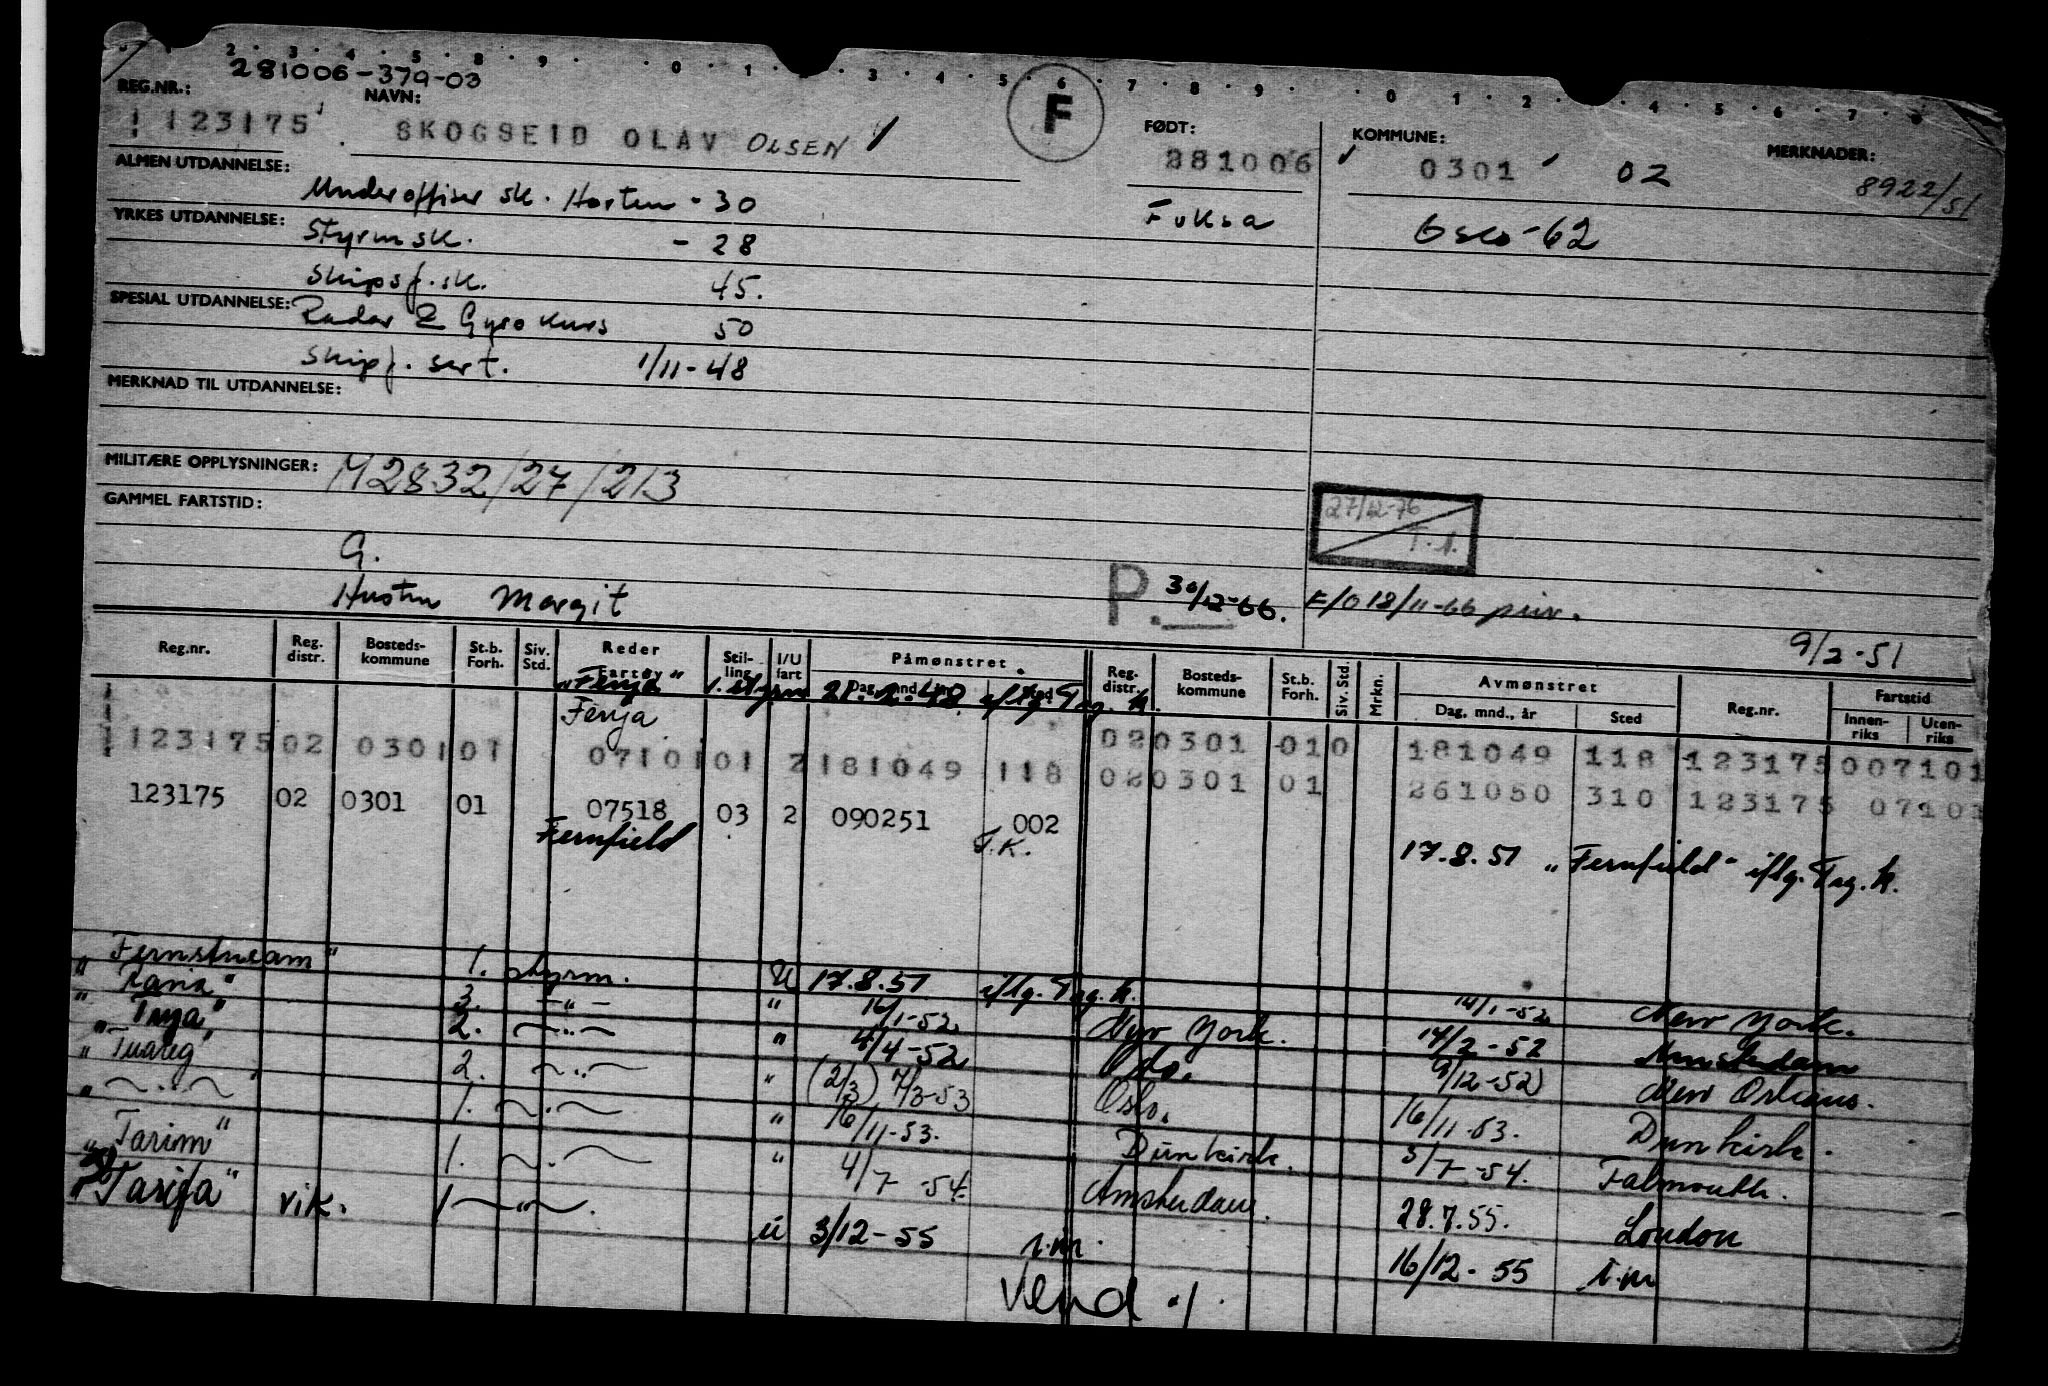 2 · 3 · 4 · 5 · 8 · 9 · · 0 · 1 · · 3 · 4 · 5 · 6 · 7 · 8 · 9 · · 0 · 1 · 2 · · 4 · 5 · 6 · 7 · 8
281006-379-03
REG.NR.: NAVN: F FØDT: KOMMUNE: MERKNADER:
123175 SKOGSEID OLAV OLSEN 281006 0301 02 8922/51
ALMEN UTDANNELSE: Underoffiser sk. Horten - 30 Fuksa Oslo -62
YRKES UTDANNELSE: Styrm sk. - 28
Skipsf. sk. 45.
SPESIAL UTDANNELSE: Radar & Gyro kurs 50
Skipf. sert. 1/11-48
MERKNAD TIL UTDANNELSE:
MILITÆRE OPPLYSNINGER: M2832/27/213
GAMMEL FARTSTID: 27/12-76
G. T.
Hustru Margit P. 30/12-66. F/O 18/11-66
9/2-51
Reg.nr. Reg. distr. Bosteds- kommune St.b. Forh. Siv. Std. Reder Fartøy Stil- ling I/U fart Påmønstret Dag, mnd., år Sted Reg. distr. Bosteds- kommune St.b. Forh. Siv. Std. Mrkn. Avmønstret Dag, mnd., år Sted Reg.nr. Fartstid Innen- riks Uten- riks
"Fenja" 1. styrm 21.2.48 iflg Tag. k.
Fenja
123175 02 0301 01 07101 01 2 181049 118 02 0301 01 0 181049 118 123175 007101
02 0301 01 261050 310 123175 07101
123175 02 0301 01 07518 03 2 090251 002
Fernfield T.K. 17.8.51 "Fernfield" iflg. Tag. k.
"Fernstream" 1. styrm. U 17.8.51 iflg. Tag. k. 14/1-52 New York.
"Tania" 3. -"- " 16/1-52 New York. 14/2-52 Amsterdam
"Troja" 2. -"- " 4/4-52 Oslo. 9/12-52 New Orleans.
"Tuareg" 2. -"- " (2/3) 7/3-53 Oslo. 16/11-53. Dunkirk.
" -"- " 1. -"- " 16/11-53. Dunkirk. 3/7-54. Falmouth.
"Tarim" 1. -"- " 4/7-54. Amsterdam. 28.7.55. London
"Tarifa" vik. 1 -"-. U 3/12-55 i.m. 16/12-55 i.m
Vend ./.